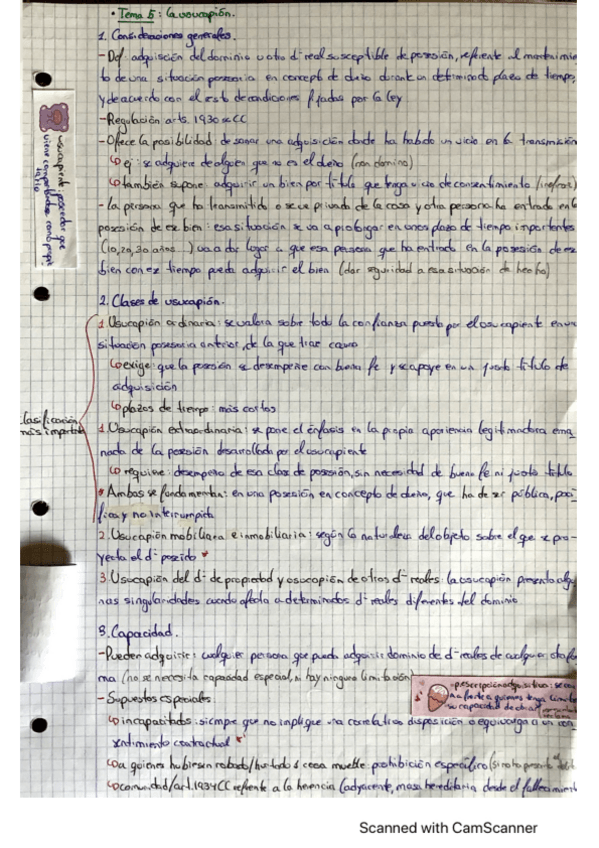 • Tema 5: La usucapión.
1. Consideraciones generales.
- Def: adquisición del dominio u otro dº real susceptible de posesión, referente al mantenimien
to de una situación posesoria en concepto de dueño durante un determinado plazo de tiempo,
y de acuerdo con el resto de condiciones fijadas por la ley
- Regulación arts. 1930 ss CC
- Ofrece la posibilidad de sanar una adquisición donde ha habido un vicio en la transmisión
↳ ej: se adquiere de alguien que no es el dueño (non domino)
↳ también supone adquirir un bien por título que traiga vicio de consentimiento /
- La persona que ha transmitido o se ve privado de la cosa y otra persona ha entrado en la
posesión de ese bien: esa situación se va a prolongar en unos plazos de tiempo importantes
(10, 20, 30 años ...) va a dar lugar a que esa persona que ha entrado en la posesión de ese
bien con ese tiempo pueda adquirir el bien (dar seguridad a esa situación de hecho)
usucapiente: poseedor que
viene comportándose como propie
tario
2. Clases de usucapión.
Clasificación
más importante
1. Usucapión ordinaria: se valora sobre todo la confianza puesta por el usucapiente en una
situación posesoria anterior, de la que trae causa
↳ exige: que la posesión se desempeñe con buena fe y se apoye en un justo título de
adquisición
↳ plazos de tiempo: más cortos
1. Usucapión extraordinaria: se pone el énfasis en la propia apariencia legitimadora ema
nada de la posesión desarrollada por el usucapiente
↳ requiere: desempeño de esa clase de posesión, sin necesidad de buena fe ni justo título
* Ambas se fundamentan: en una posesión en concepto de dueño, que ha de ser pública, pací
fica y no interrumpida
2. Usucapión mobiliaria e inmobiliaria: según la naturaleza del objeto sobre el que se pro-
yecta el dº poseído *
3. Usucapión del dº de propiedad y usucapión de otros dº reales: la usucapión presenta algu
nas singularidades cuando afecta a determinados dº reales diferentes del dominio
3. Capacidad.
- Pueden adquirir: cualquier persona que pueda adquirir dominio de dº reales de cualquier otra for
ma (no se necesita capacidad especial, ni hay ninguna limitación)
- prescripción adquisitiva: se
na frente a quienes tenga limita
su capacidad de obrar
- Supuestos especiales
↳ incapacitados: siempre que no implique una correlativa disposición o equivalga a un con
sentimiento contractual *
↳ a quienes hubiesen robado/hurtado la cosa mueble: prohibición específica
↳ comunidad/art. 1934 CC referente a la herencia (adyacente, masa hereditaria desde el fallecimient
Scanned with CamScanner